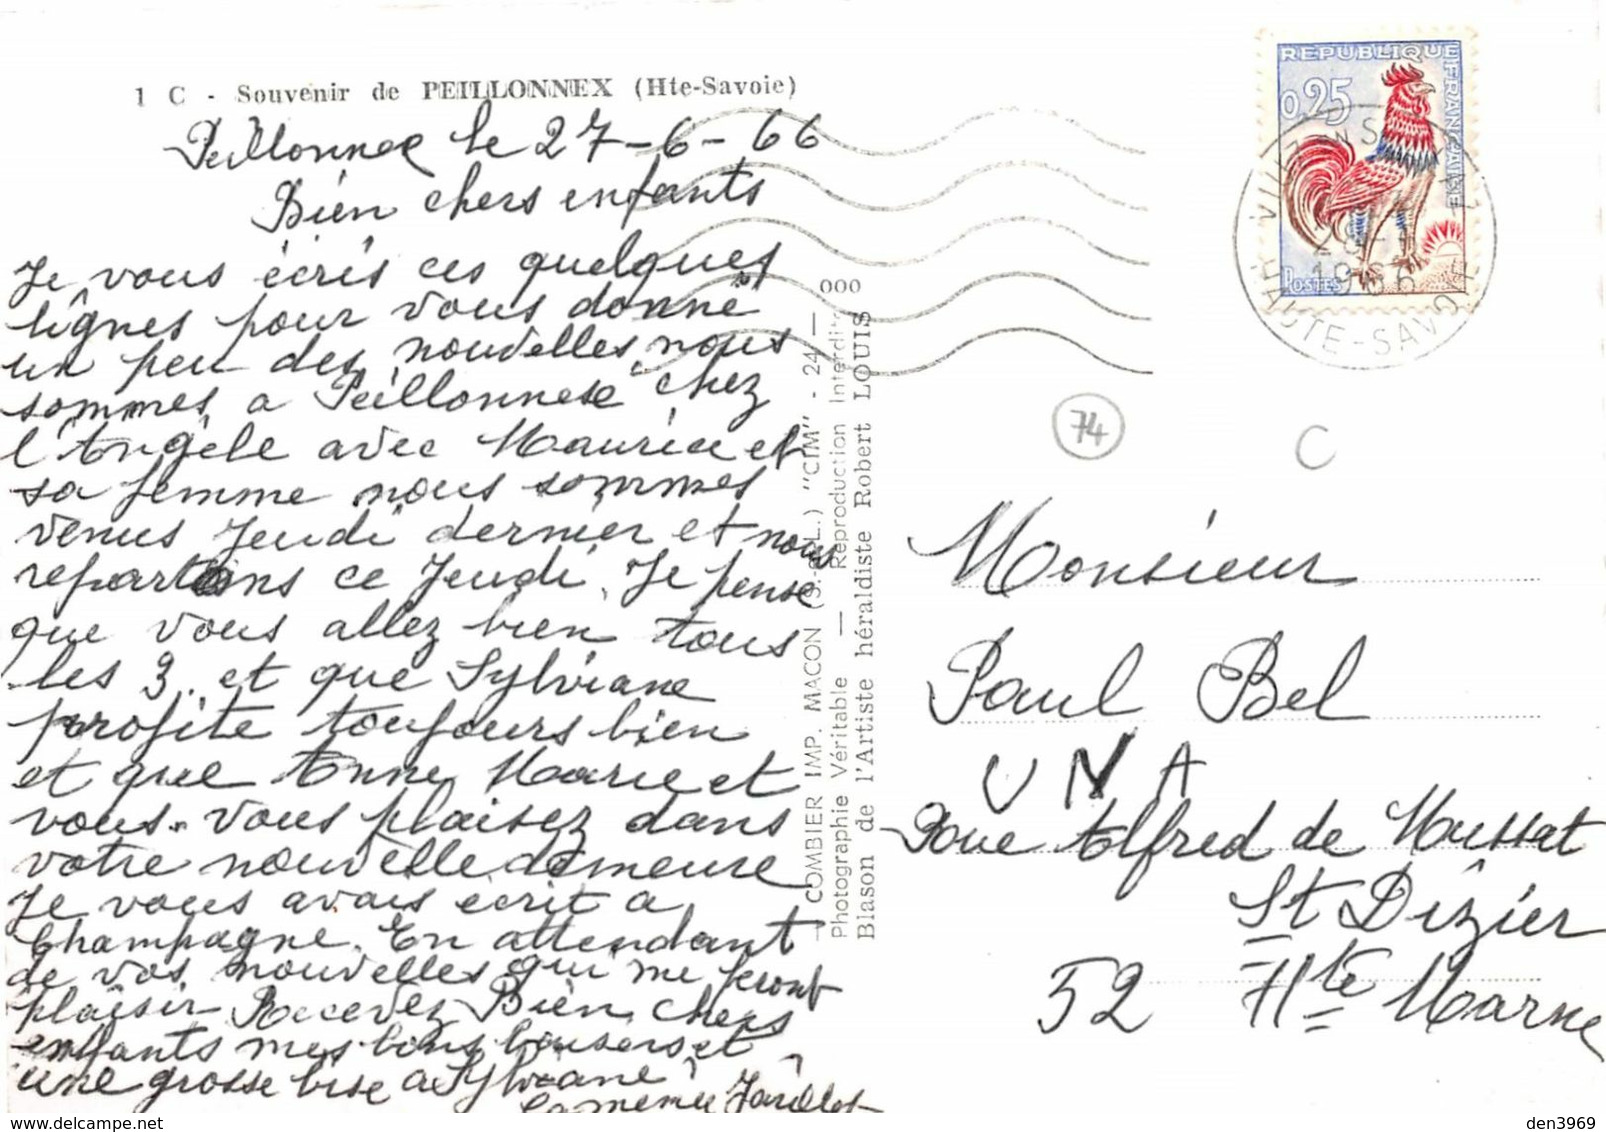 1 C - Souvenir de PEILLONNEX (Hte-Savoie)
Peillonnex le 27-6-66
Bien chers enfants
Je vous écris ces quelques
lignes pour vous donné
un peu des nouvelles, nous
sommes a Peillonnex chez
l'Angèle avec Maurice et
sa femme nous sommes
venus Jeudi dernier et nous
repartons ce Jeudi. Je pense
que vous allez bien tous
les 3. et que Sylviane
profite toujours bien
et que Anne Marie et
vous. vous plaisez dans
votre nouvelle demeure
Je vous avais écrit a
Champagne. En attendant
de vos nouvelles qui me feront
plaisir Recevez Bien chers
enfants mes bons baisers et
une grosse bise a Sylviane
La mémée
000
COMBIER IMP. MACON (S.-et-L.) "CIM" - 24 —
Photographie Véritable — Reproduction Interdite
Blason de l'Artiste héraldiste Robert LOUIS
REPUBLIQUE FRANÇAISE
0,25
POSTES
28-
1966
HAUTE-SAVOIE
74
C
Monsieur
Paul Bel
U N A
Rue Alfred de Mussat
St Dizier
52 Hte Marne
den3969